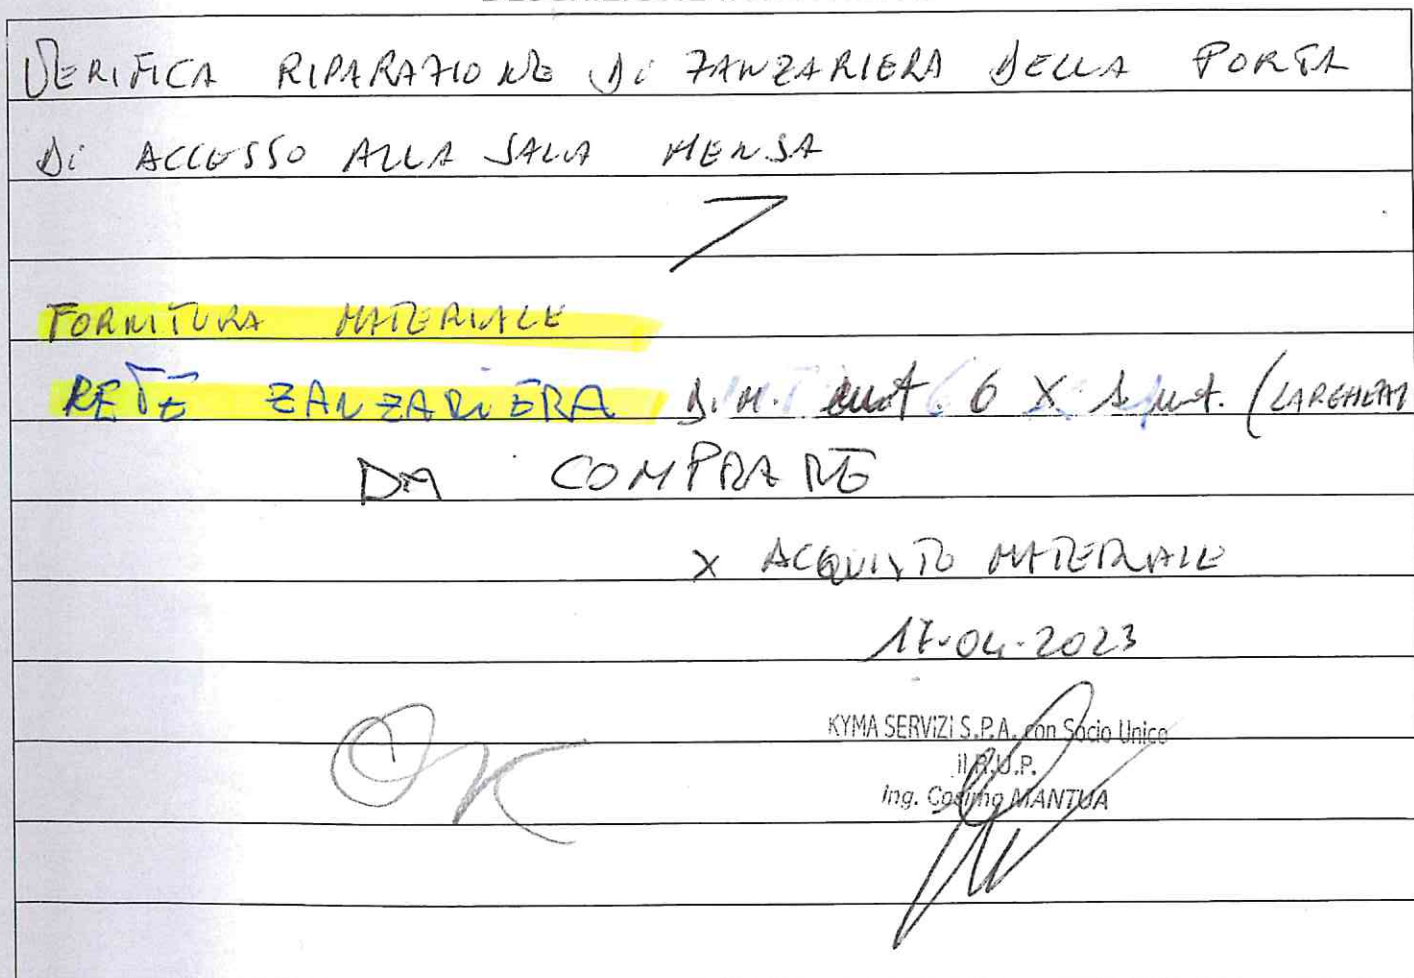 VERIFICA RIPARAZIONE Di ZANZARIERA DELLA PORTA
Di ACCESSO ALLA SALA MENSA
FORNITURA MATERIALE
RETE ZANZARIERA DiM. mt. 6 X 1 mt. (LARGHEZZA
DA COMPRARE
X ACQUISTO MATERIALE
17-04-2023
KYMA SERVIZI S.P.A. con Socio Unico
il R.U.P.
Ing. Cosimo MANTUA
OK